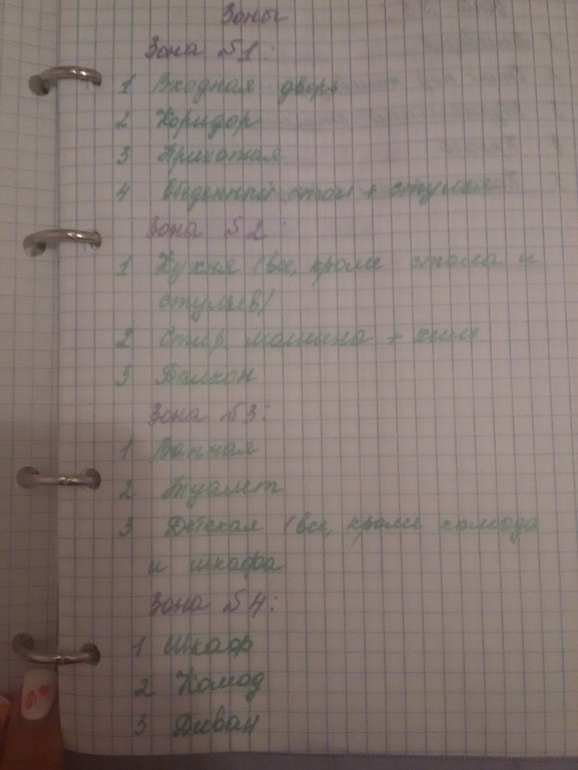 Зоны
Зона №1:
1 Входная дверь
2 Коридор
3 Прихожая
4 Обеденный стол + стулья
Зона №2:
1 Кухня (все, кроме стола и
стульев)
2 Стир. машина + хим
3 Балкон
Зона №3:
1 Ванная
2 Туалет
3 Детская (все, кроме комода
и шкафа
Зона №4:
1 Шкаф
2 Комод
3 Диван